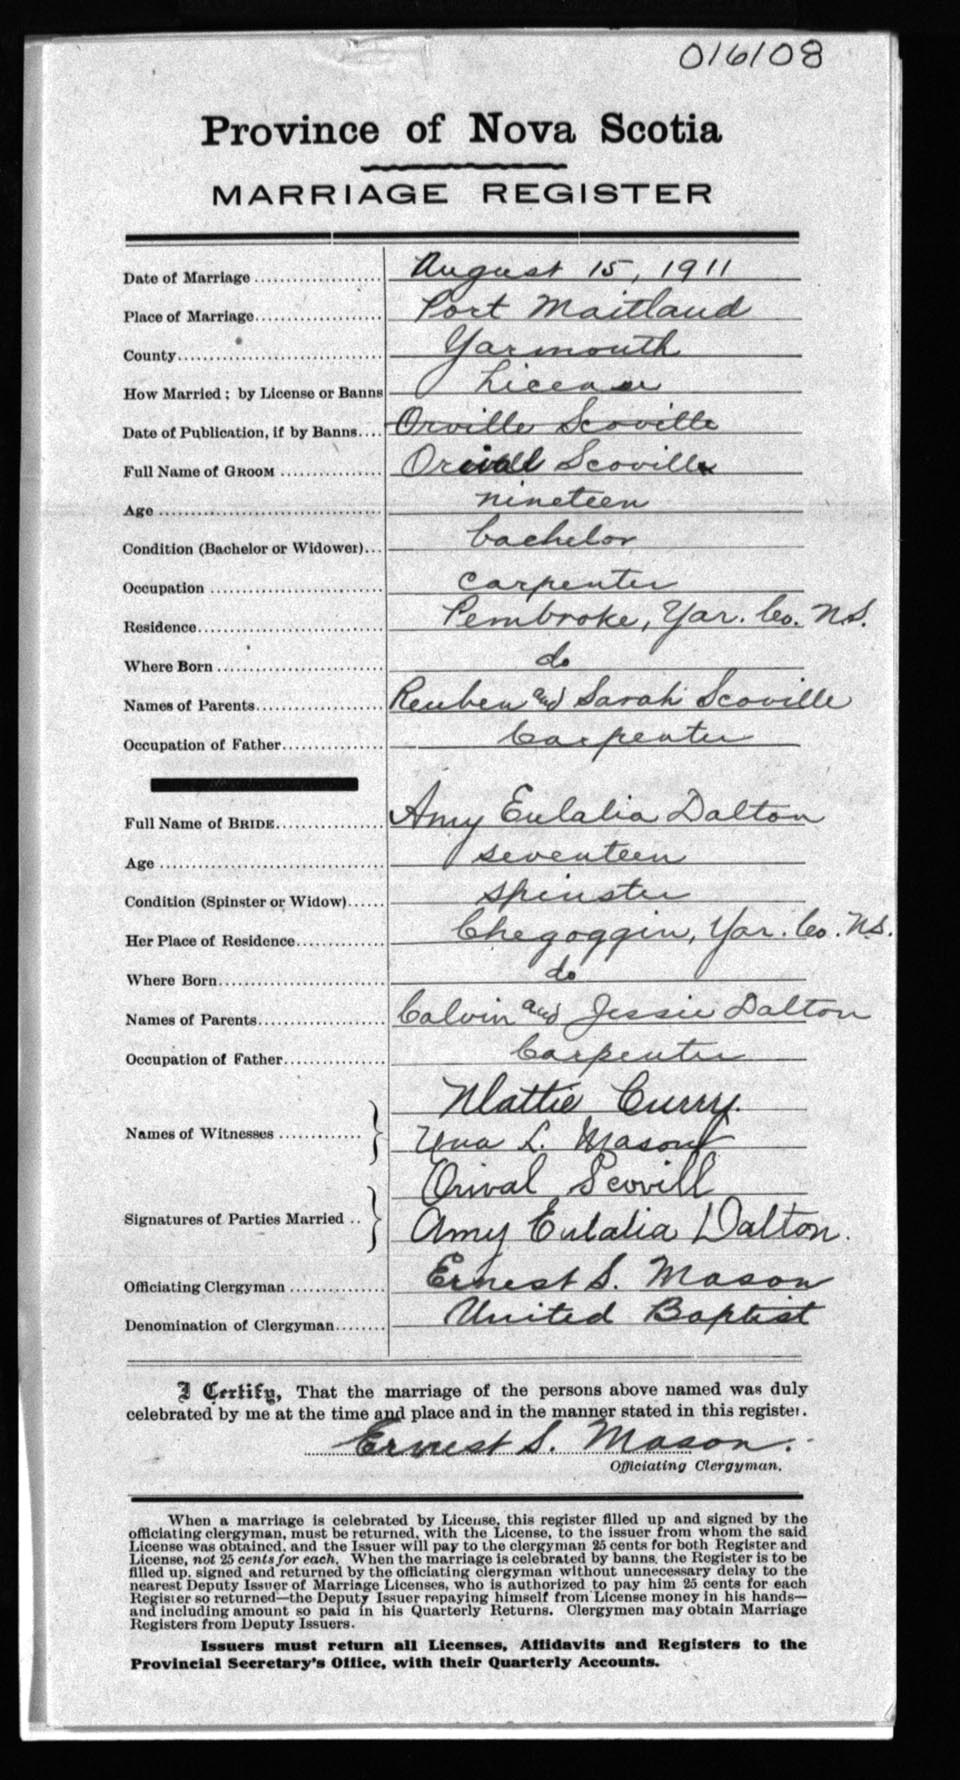 016108
Province of Nova Scotia
MARRIAGE REGISTER
Date of Marriage .................... August 15, 1911
Place of Marriage.................... Port Maitland
County.................... Yarmouth
How Married; by License or Banns License
Date of Publication, if by Banns.... Orville Scoville
Full Name of GROOM .................... Orivall Scovill
Age .................... nineteen
Condition (Bachelor or Widower)... bachelor
Occupation .................... carpenter
Residence.................... Pembroke, Yar. Co. N.S.
Where Born .................... do
Names of Parents.................... Reuben and Sarah Scoville
Occupation of Father.................... Carpenter
Full Name of BRIDE.................... Amy Eulalia Dalton
Age .................... seventeen
Condition (Spinster or Widow)...... spinster
Her Place of Residence.................... Chegoggin, Yar. Co. N.S.
Where Born.................... do
Names of Parents.................... Calvin and Jessie Dalton
Occupation of Father.................... Carpenter
Mattie Curry.
Names of Witnesses .............
Una L. Mason
Orival Scovill
Signatures of Parties Married ..
Amy Eulalia Dalton.
Officiating Clergyman ............... Ernest S. Mason
Denomination of Clergyman........ United Baptist
I Certify, That the marriage of the persons above named was duly
celebrated by me at the time and place and in the manner stated in this register.
Ernest S. Mason.
Officiating Clergyman.
When a marriage is celebrated by License, this register filled up and signed by the
officiating clergyman, must be returned, with the License, to the issuer from whom the said
License was obtained, and the Issuer will pay to the clergyman 25 cents for both Register and
License, not 25 cents for each. When the marriage is celebrated by banns, the Register is to be
filled up, signed and returned by the officiating clergyman without unnecessary delay to the
nearest Deputy Issuer of Marriage Licenses, who is authorized to pay him 25 cents for each
Register so returned—the Deputy Issuer repaying himself from License money in his hands—
and including amount so paid in his Quarterly Returns. Clergymen may obtain Marriage
Registers from Deputy Issuers.
Issuers must return all Licenses, Affidavits and Registers to the
Provincial Secretary's Office, with their Quarterly Accounts.